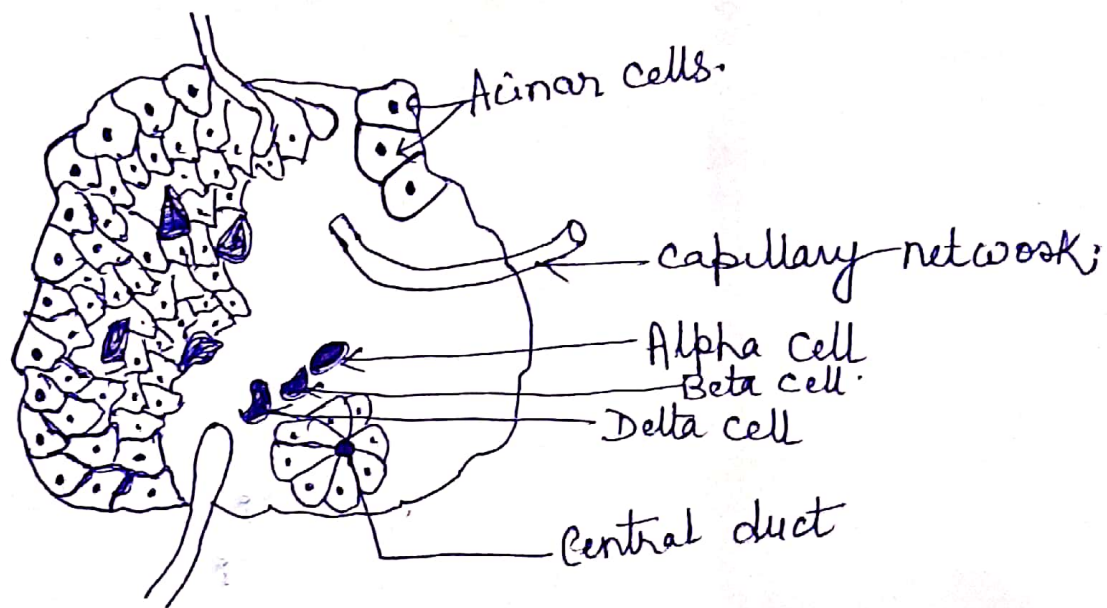 Acinar cells.
capillary network;
Alpha cell
Beta cell.
Delta cell
Central duct